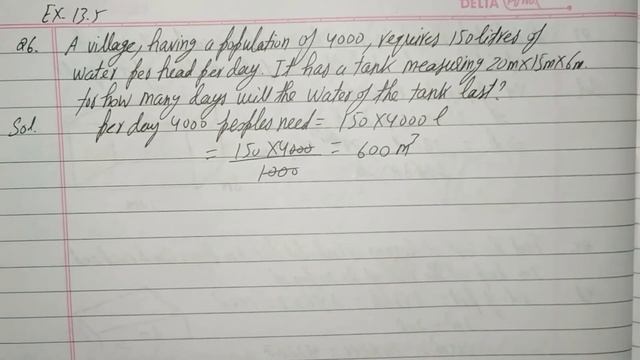 DELTA
Ex. 13.5
Q6. A village, having a population of 4000, requires 150 litres of
water per head per day. It has a tank measuring 20m×15m×6m.
for how many days will the water of the tank last?
Sol. per day 4000 peoples need = 150×4000 l
= 150×4000/1000 = 600 m³